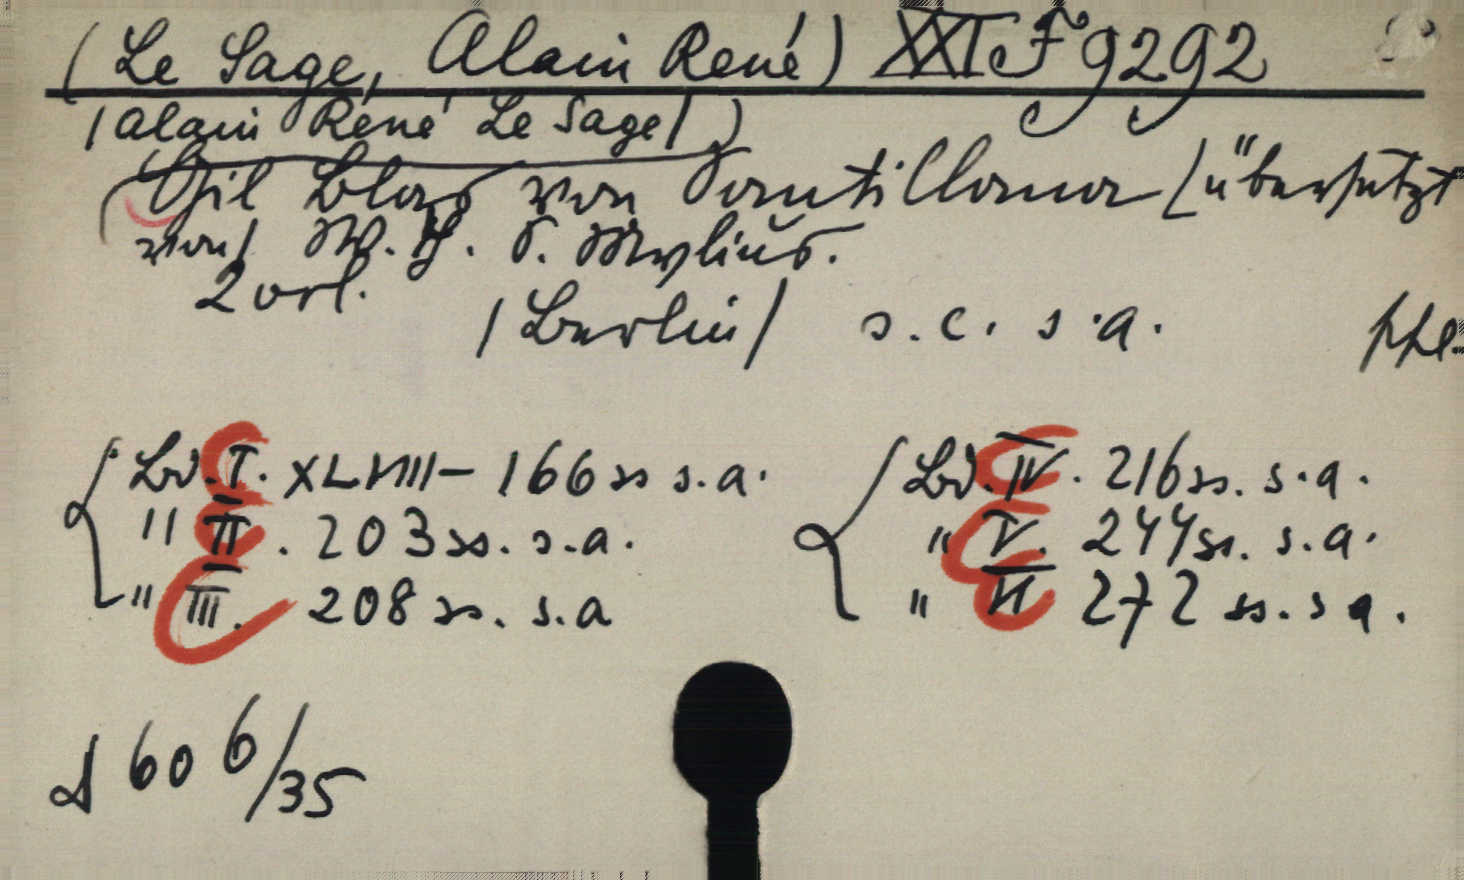 (Le Sage, Alain René) XXI F 9292
/Alain René Le Sage/)
Gil Blas von Santillana [übersetzt
von] W. H. S. Mylius.
2 vol.
/Berlin/ s. c. s. a.
Bd. I. XLVIII - 166 ss s. a.
" II. 203 ss. s. a.
" III. 208 ss. s. a
Bd. IV. 216 ss. s. a.
" V. 244 ss. s. a.
" VI 272 ss. s a.
d 60 6/35